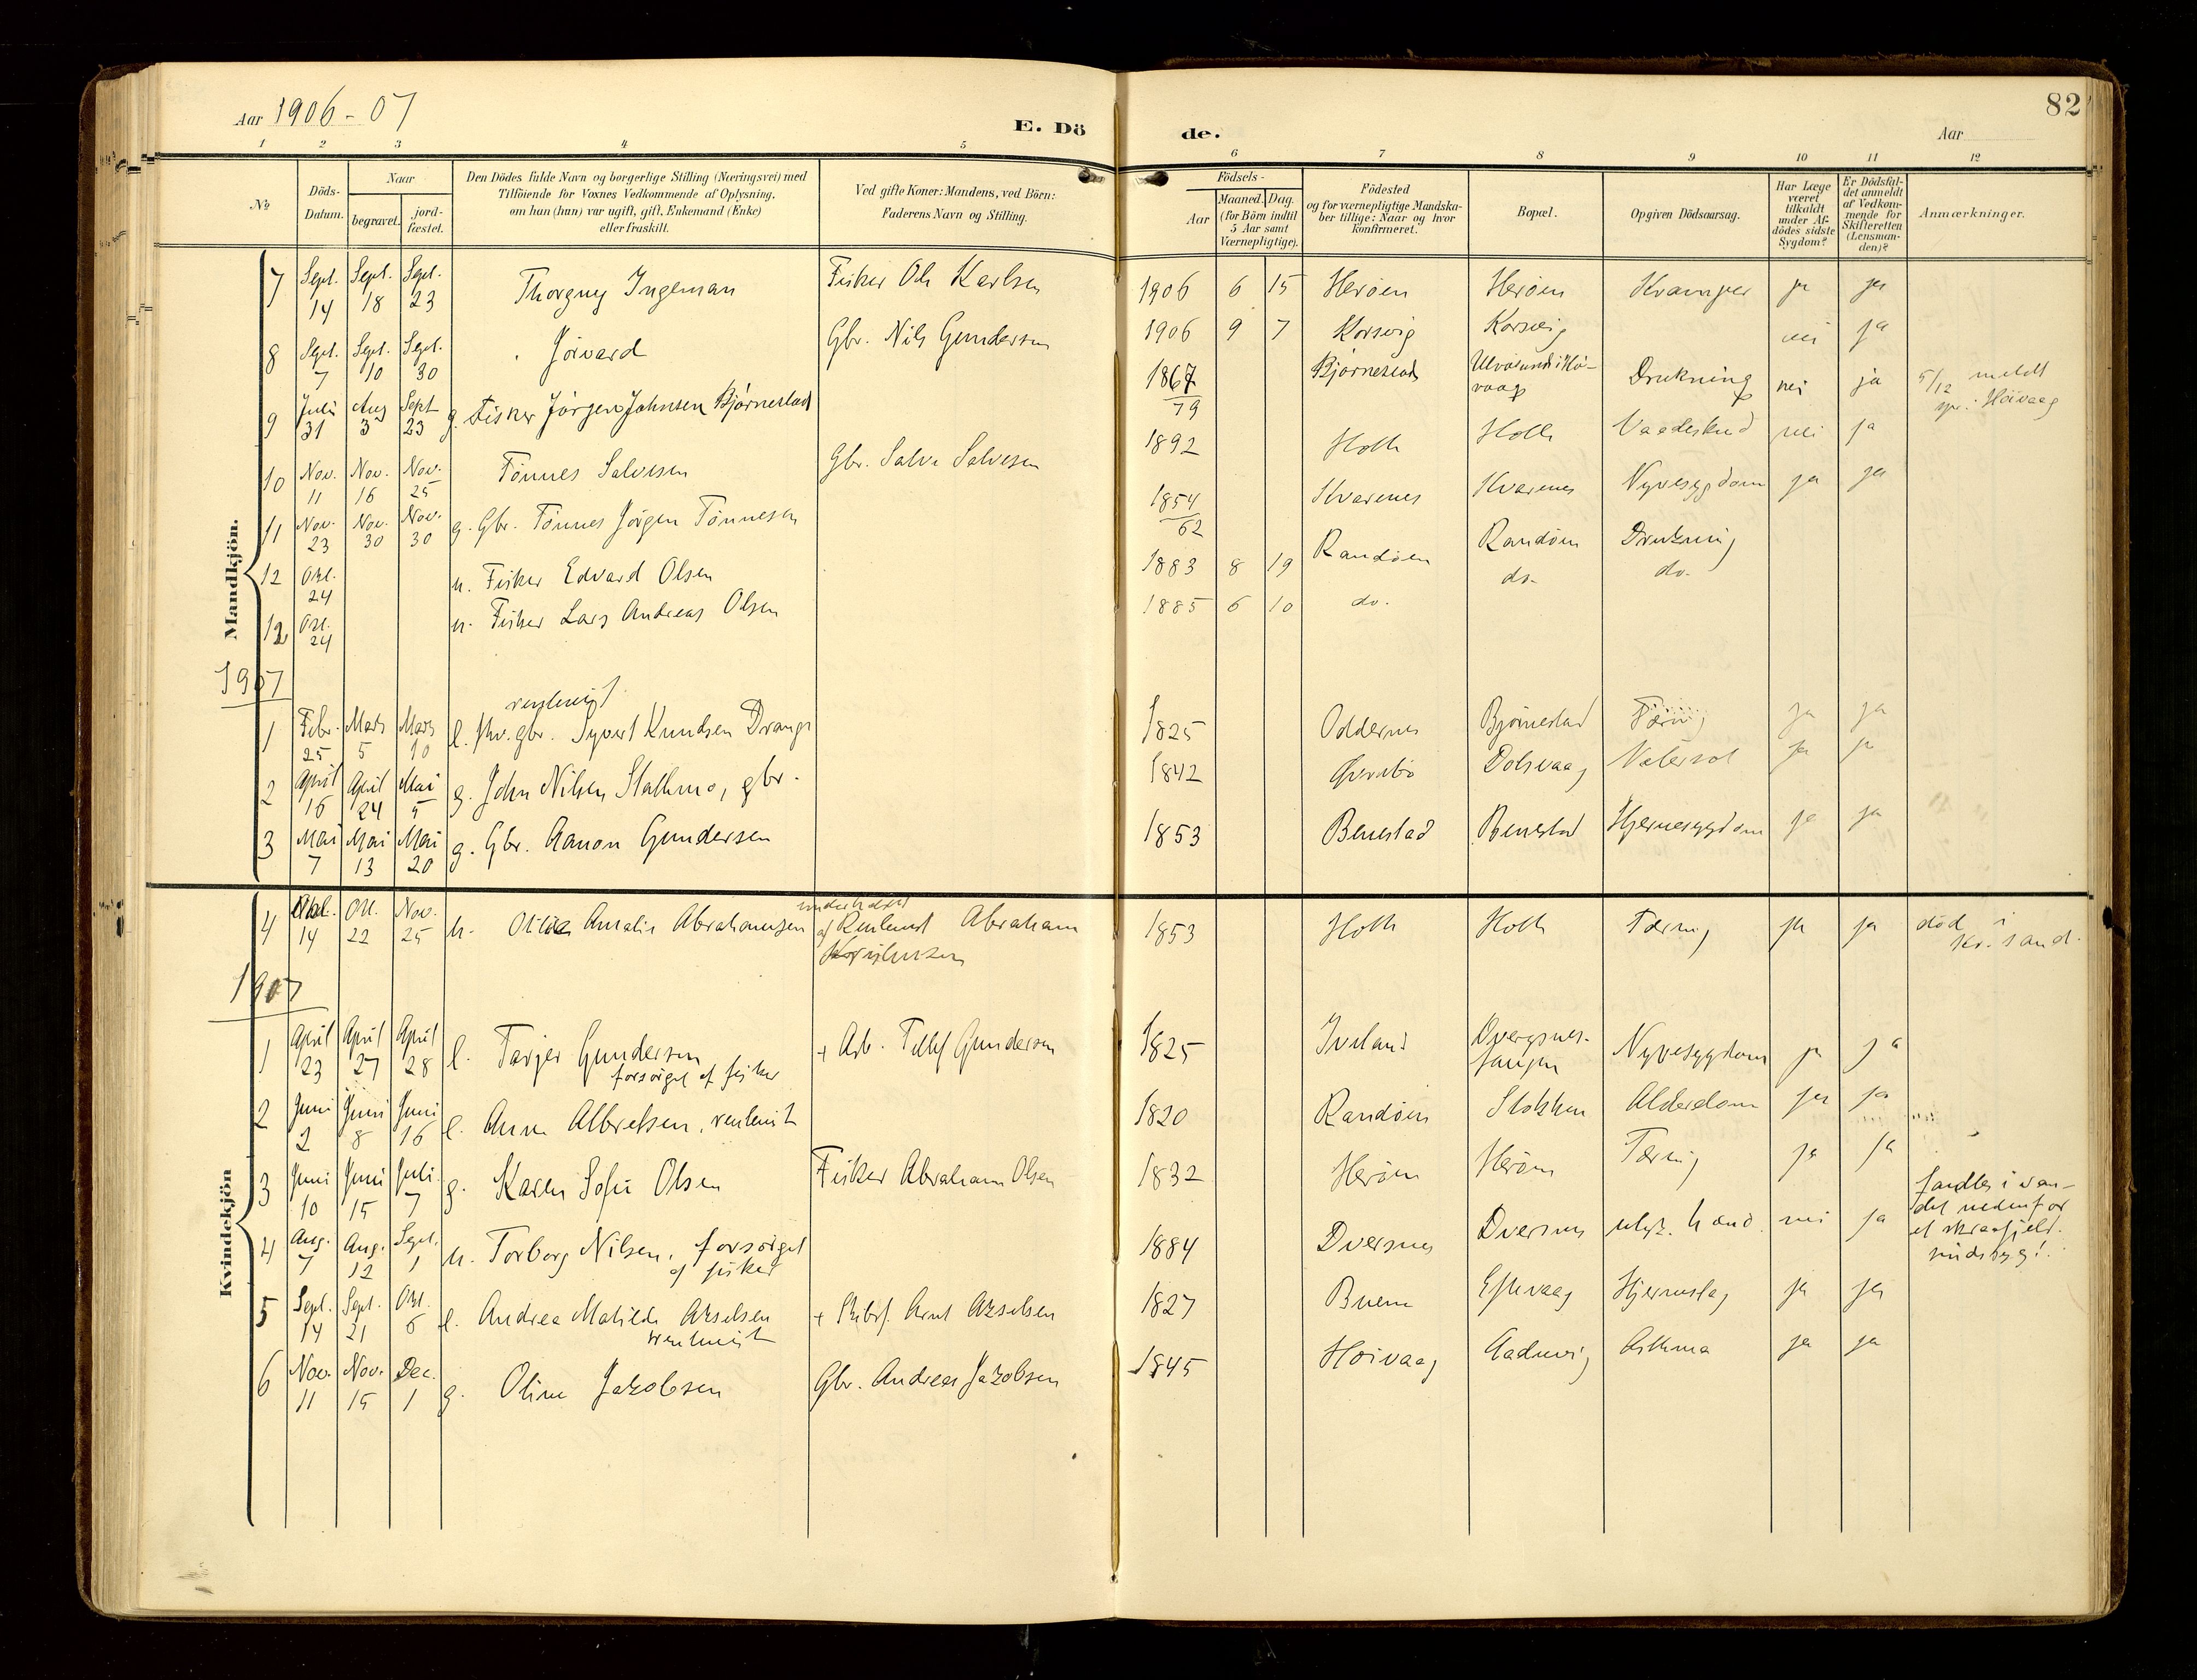 82
Aar 1906-07
E. Dö de.
Aar
1 2 3 4 5 6 7 8 9 10 11 12
No
Döds-Datum.
Naar
begravet.
jord-fæstet.
Den Dödes fulde Navn og borgerlige Stilling (Næringsvei) med
Tilföiende for Voxnes Vedkommende af Oplysning,
om han (hun) var ugift, gift, Enkemand (Enke)
eller fraskilt.
Ved gifte Koner: Mandens, ved Börn:
Faderens Navn og Stilling.
Födsels-
Aar
Maaned. Dag.
(for Börn indtil
5 Aar samt
Værnepligtige).
Födested
og for værnepligtige Mandska-
ber tillige: Naar og hvor
konfirmeret.
Bopæl.
Opgiven Dödsaarsag.
Har Læge
været
tilkaldt
under Af-
dödes sidste
Sygdom?
Er Dödsfal-
det anmeldt
af Vedkom-
mende for
Skifteretten
(Lensman-
den)?
Anmærkninger.
Mandkjön.
7 Sept. 14 Sept. 18 Sept. 23 Thorguy Ingeman Fisker Ole Karlsen 1906 6 15 Herøen Herøen Kramper ja ja
8 Sept. 7 Sept. 10 Sept. 30 Jörvard Gbr. Nils Gundersen 1906 9 7 Korsvig Korsvig nei ja
9 Juli 31 Aug 3 Sept 23 g. Fisker Jörgen Johnsen Bjørnestad 1867 79 Bjørnestad Ulvøsund i Hö-
vaag Drukning nei ja 5/12 meldt
Höivaag
10 Nov. 11 Nov. 16 Nov. 25 Tönnes Salvesen Gbr. Salve Salvesen 1892 Holte Holte Vaadeskud nei ja
11 Nov. 23 Nov. 30 Nov. 30 g. Gbr. Tönnes Jörgen Tönnesen 1854 62 Kvarenes Kvarenes Nyresygdom ja ja
12 Okt. 24 u. Fisker Edvard Olsen 1883 8 19 Randøen Randøen Drukning
12 Okt. 24 u. Fisker Lars Andreas Olsen 1885 6 10 do. do. do.
1907
1 Febr. 25 Mars 5 Mars 10 e. fhv. gbr. Syvert Knudsen Drange 1825 Oddernes Bjørnestad Tæring ja ja
2 April 16 April 24 Mai 5 g. John Nilsen Stathmo, gbr. 1842 Øvrebö Dolsvaag ja ja
3 Mai 7 Mai 13 Mai 20 g. Gbr. Aanon Gundersen 1853 Benestad Benestad Hjernesygdom ja ja
Kvindekjön
4 Okt. 14 Okt. 22 Nov. 25 u. Otilie Amalie Abrahamsen underholdt
af Rentenist Abraham
1853 Holte Holte Tæring ja ja död i
kr.sand.
1907
1 April 23 April 27 April 28 e. Tarjer Gundersen
forsörget af fisker
+ Arb. Tellef Gundersen 1825 Iveland Nyresygdom ja ja
2 Juni 2 Juni 8 Juni 16 e. Anne Albretsen, rentenist 1820 Randøen Stokken Alderdom ja ja
3 Juni 10 Juni 15 Juli 7 g. Karen Sofie Olsen Fisker Abraham Olsen 1832 Herøen Herøen Tæring ja ja
4 Aug. 7 Aug. 12 Sept. 1 u. Torborg Nilsen, forsörget
af fisker
1884 Dversnes Dversnes nei ja fandtes i van-
det nedenfor
et skraafjeld.
5 Sept. 14 Sept. 21 Okt. 6 e. Andrea Matilde Akselsen
rentenist
+ Skibsf. Arnt Akselsen 1827 Buene Eftevaag Hjerneslag ja ja
6 Nov. 11 Nov. 15 Dec. 1 g. Oline Jakobsen Gbr. Andreas Jakobsen 1845 Höivaag Aadnevig Asthma ja ja